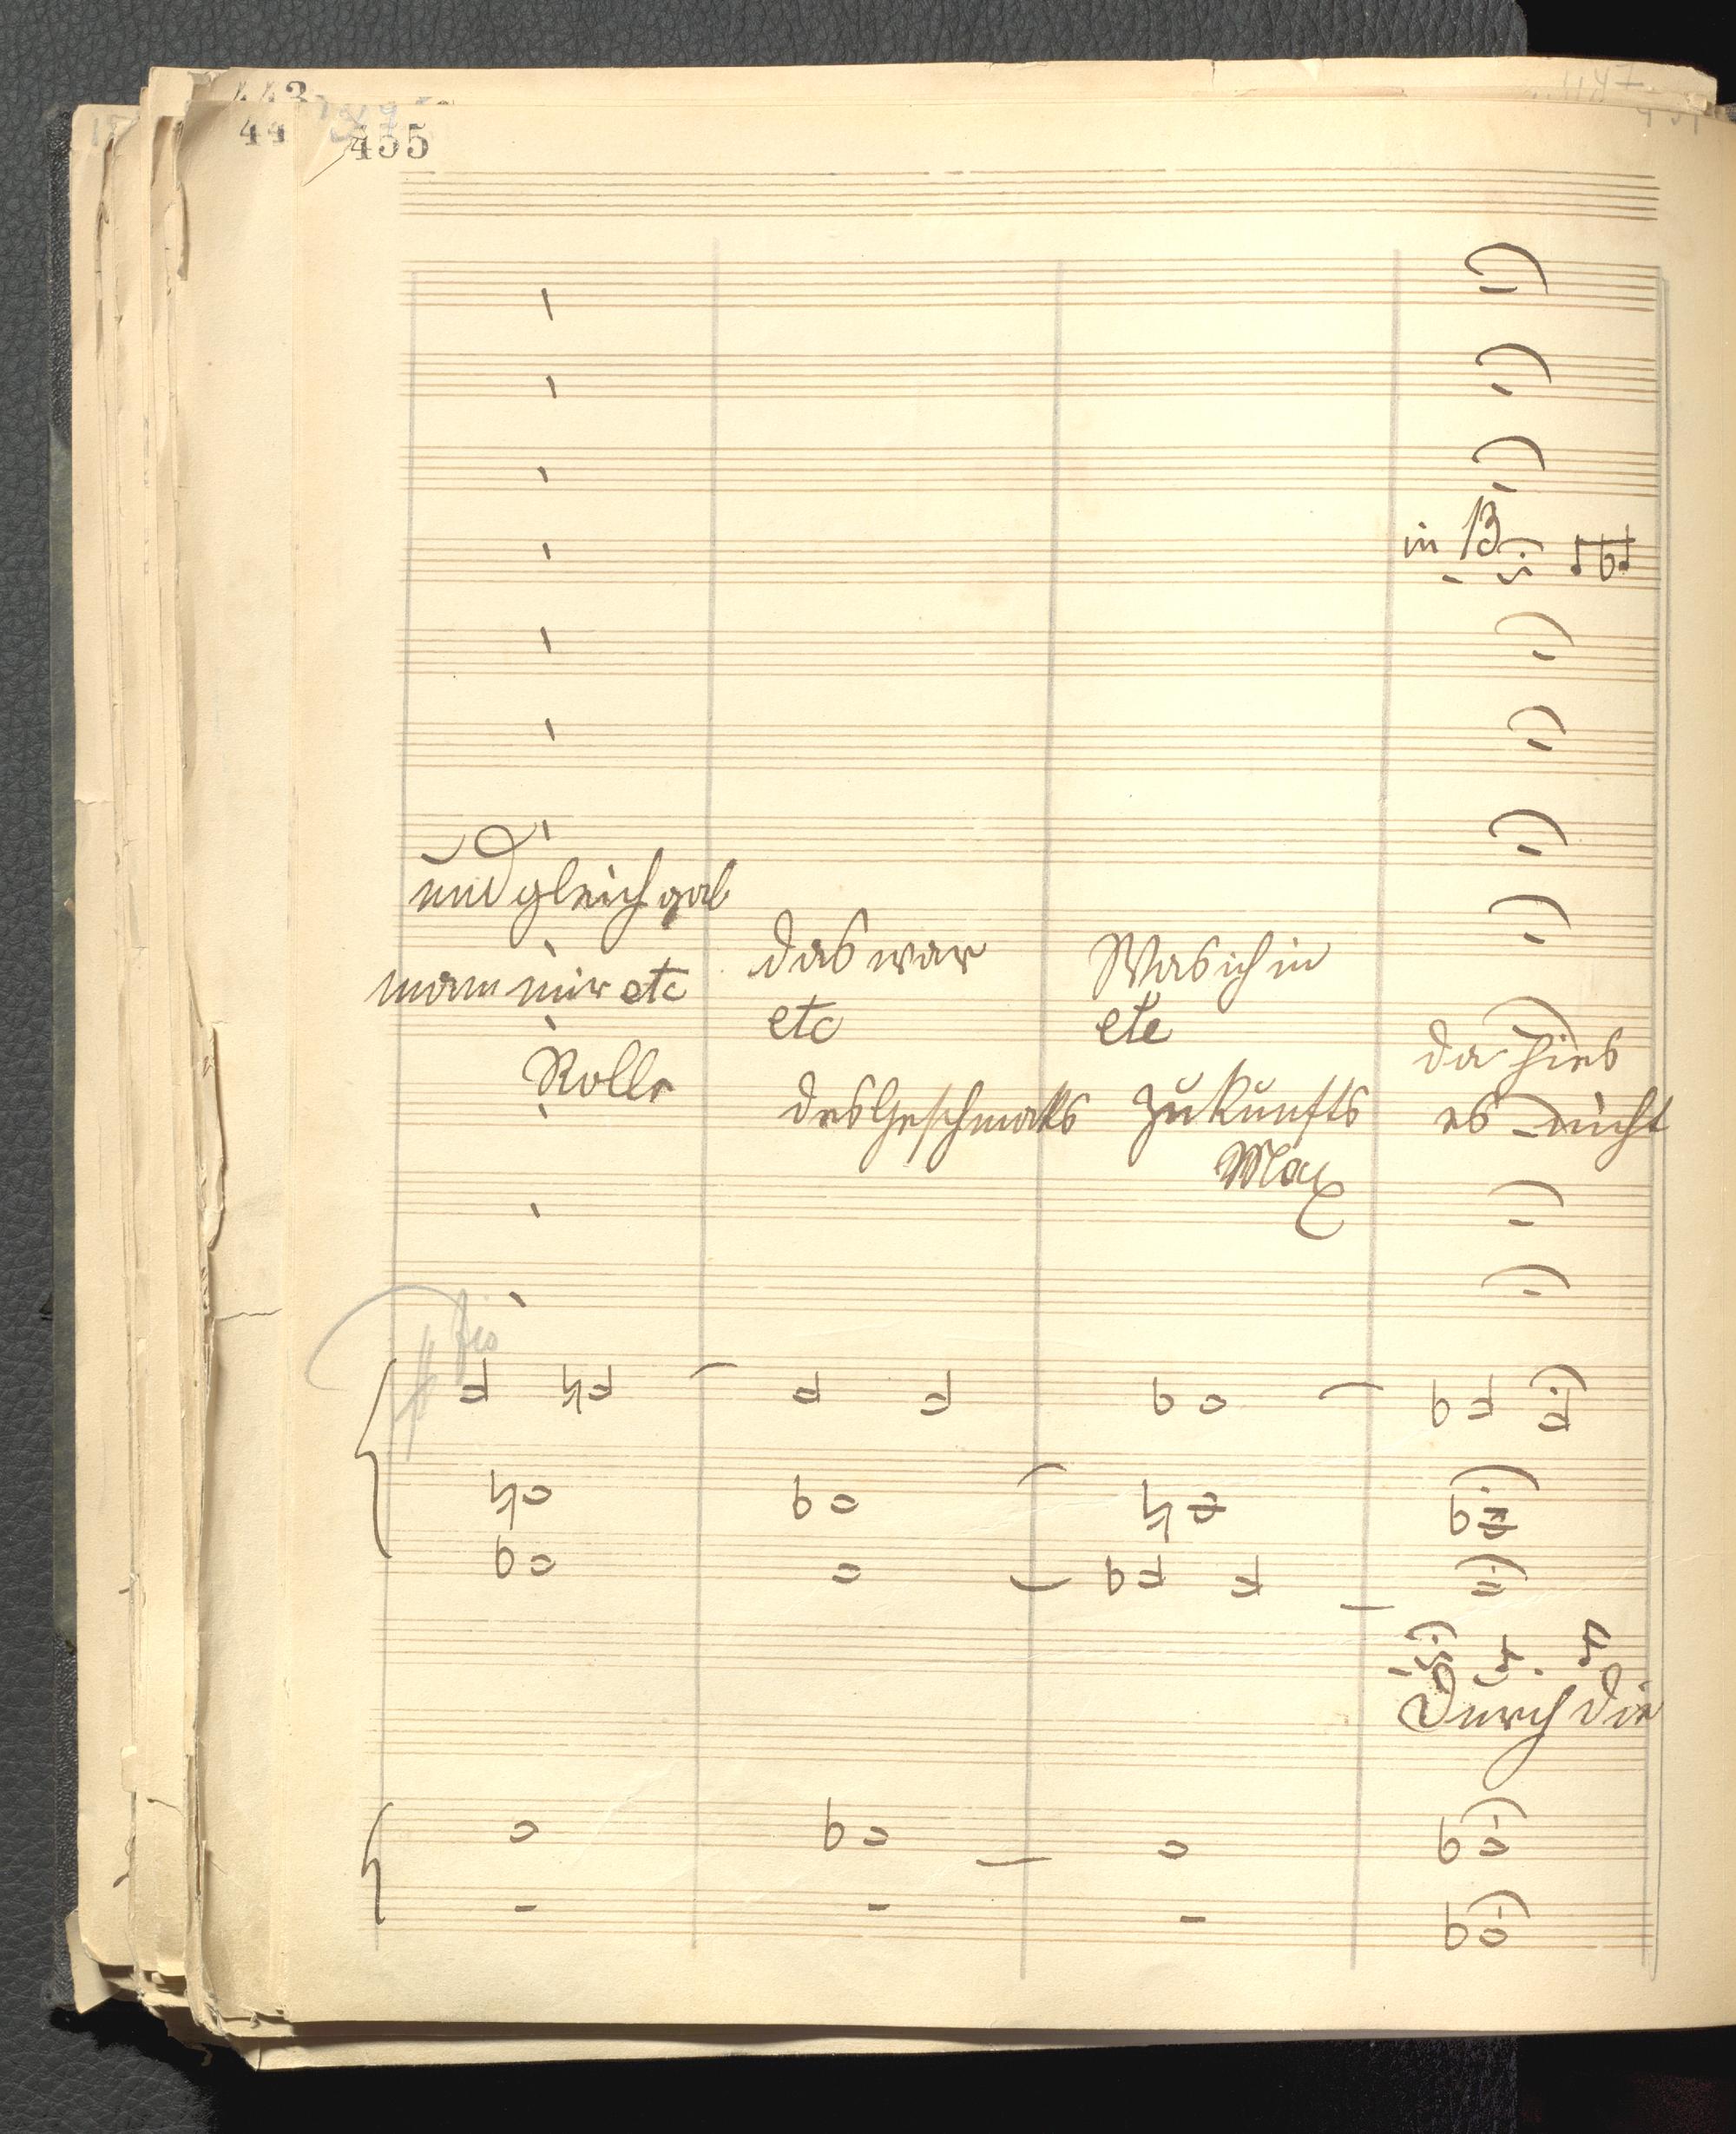 443
44
455
in B
und gleich gab
man mir etc
Rolle
das war
etc
des Geschmaks
Was ich in
etc
Zukunfts
Max
da hies
es nicht
fis
Durch die